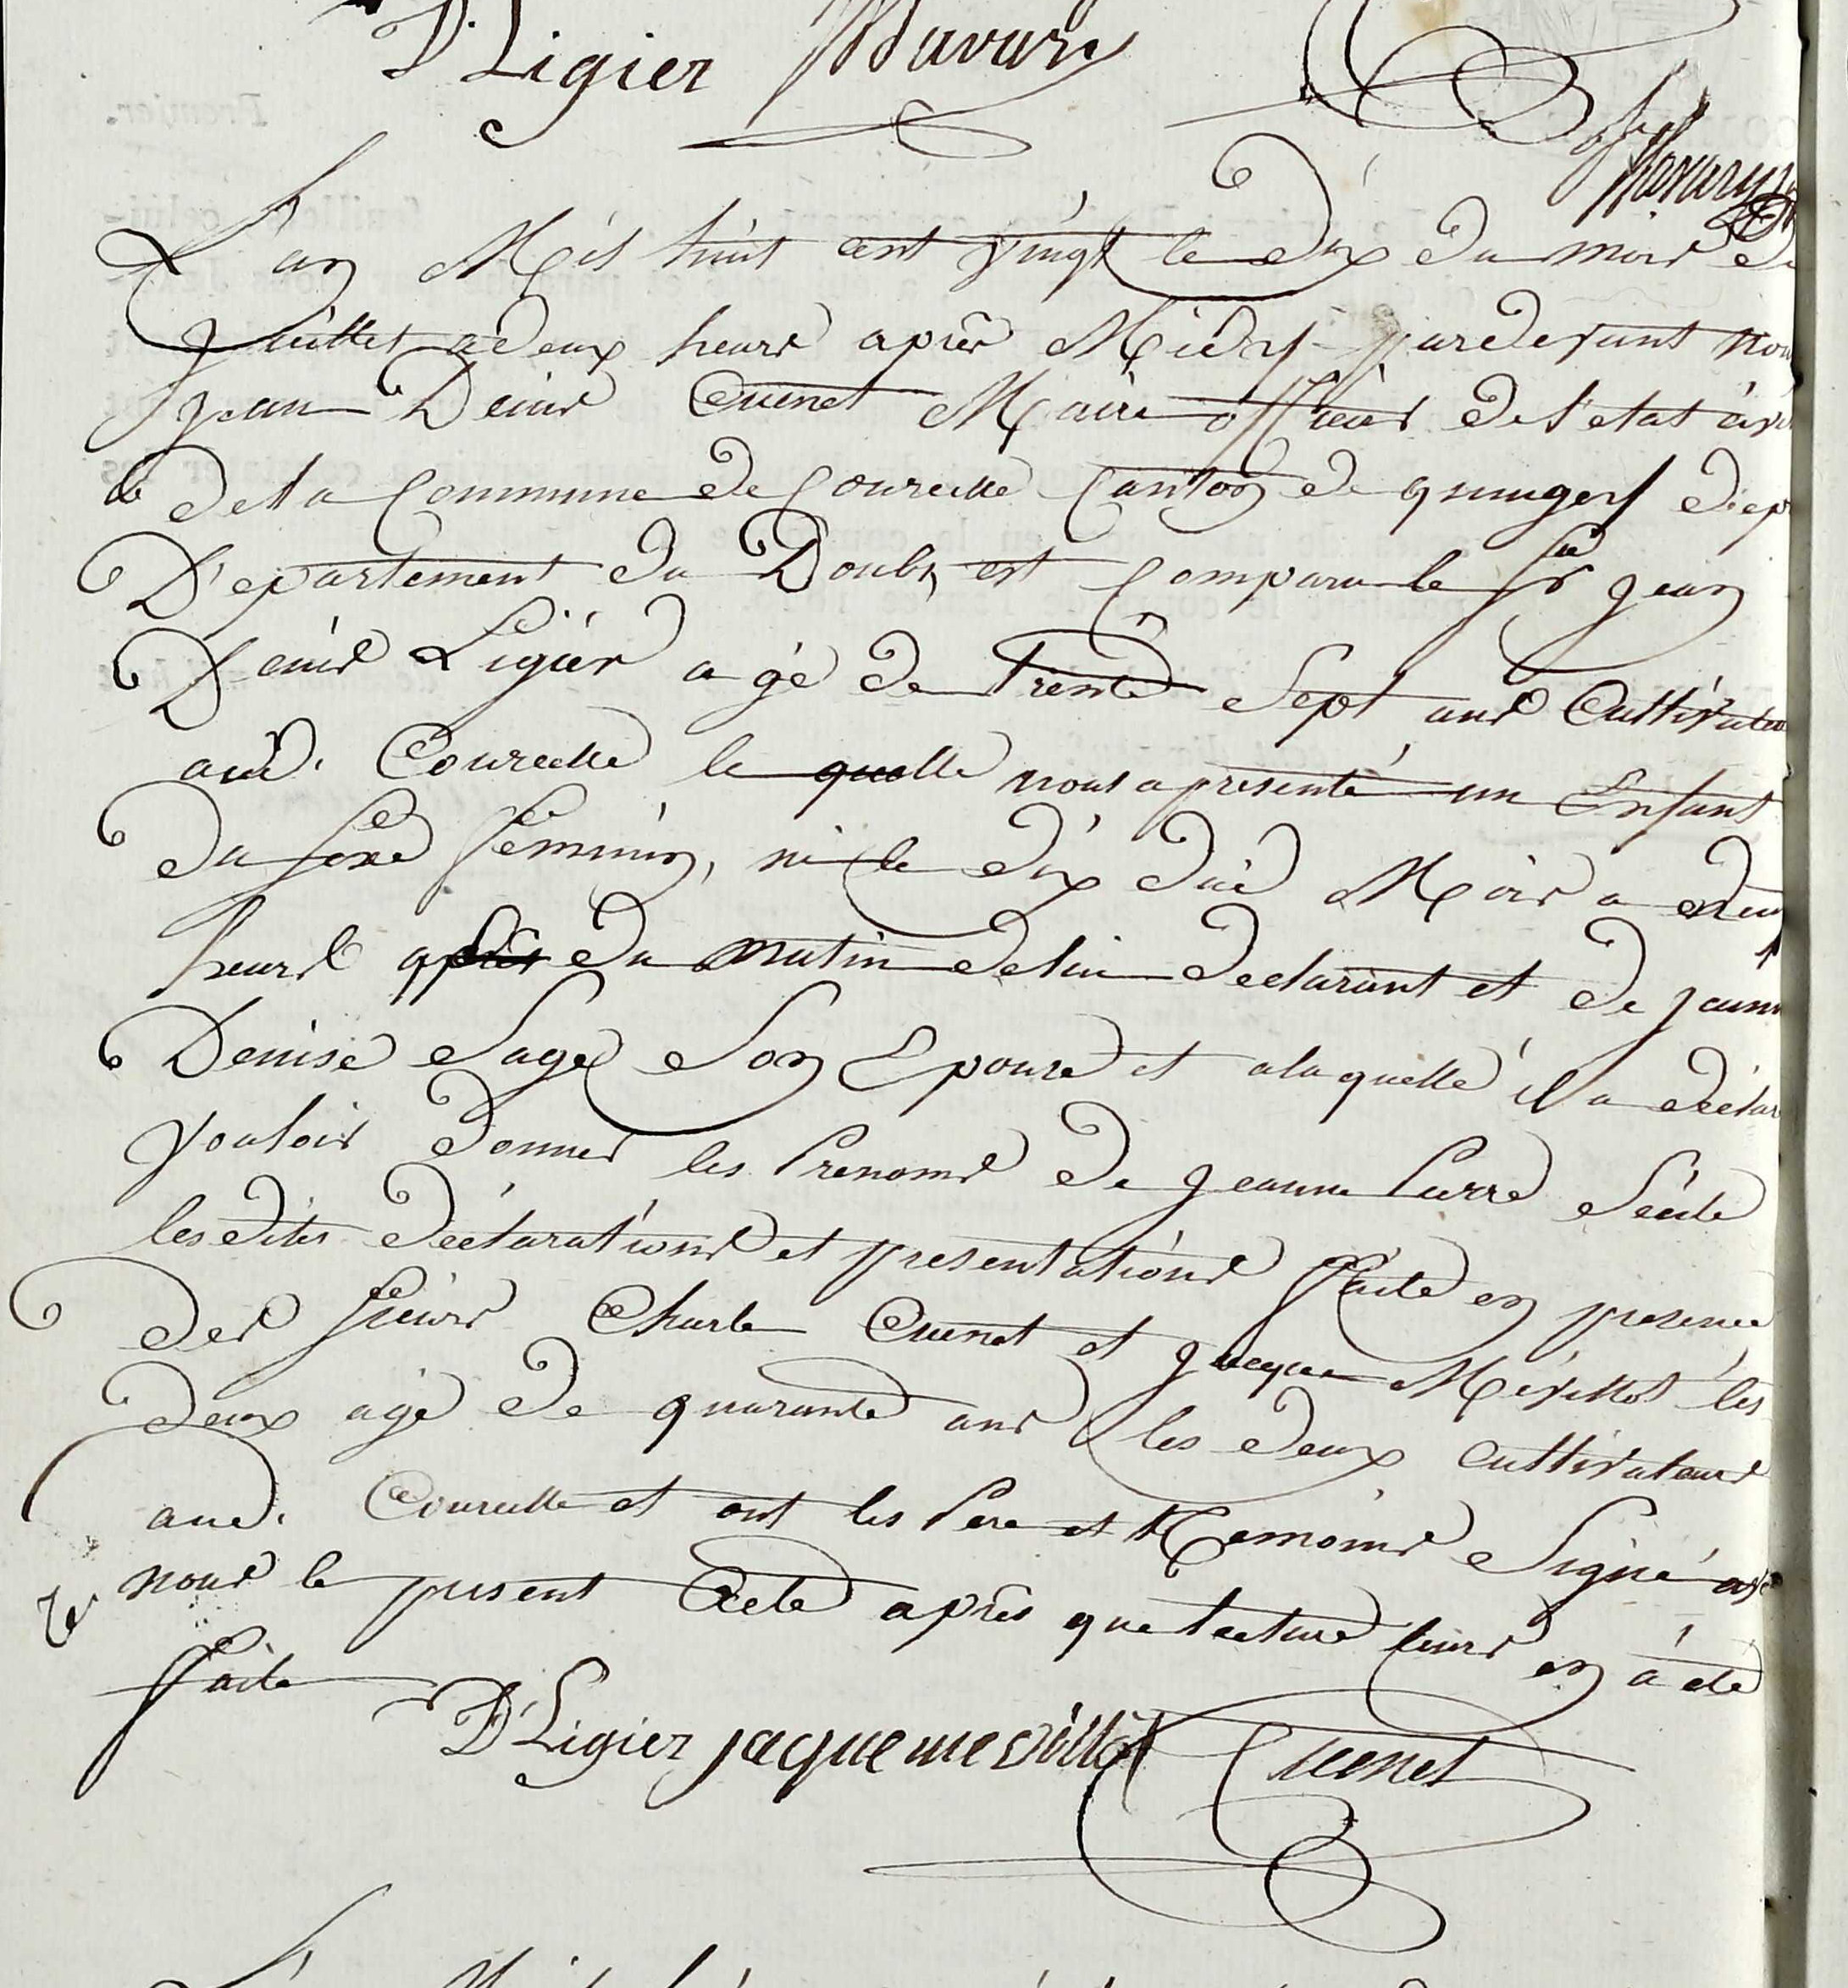 D. Ligier
L'an Mil huit cent vingt le dix du mois de
Juillet a deux heure après Midy pardevant nou
Jean Denis Cuenet Maire officier de l'etat civi
de la Commune de Courcelle Canton de quingey dep
Departement du Doubs, est Comparu le Sr jean
Denis Ligier agé de Trente Sept ans Cultivateu
aud. Courcelle le quelle nous a presenté un Enfant
du sexe feminin, né le dix dud Mois a
heure après du matin de lui declarant et de jeann
Denise Sage Son Epouse et a la quelle il a declar
vouloir donner les Prenoms de jeanne Pierre
les dites déclarations et presentations faite en presence
des sieurs Charle Cuenet et jacque Mévillot les
deux agé de quarante ans les deux cultivateurs
aud. Courcelle et ont les Pere et Temoins Signé ave
nous le present Acte après que lecture leurs en a eté
faite
D. Ligier jaque mevillot Cuenet